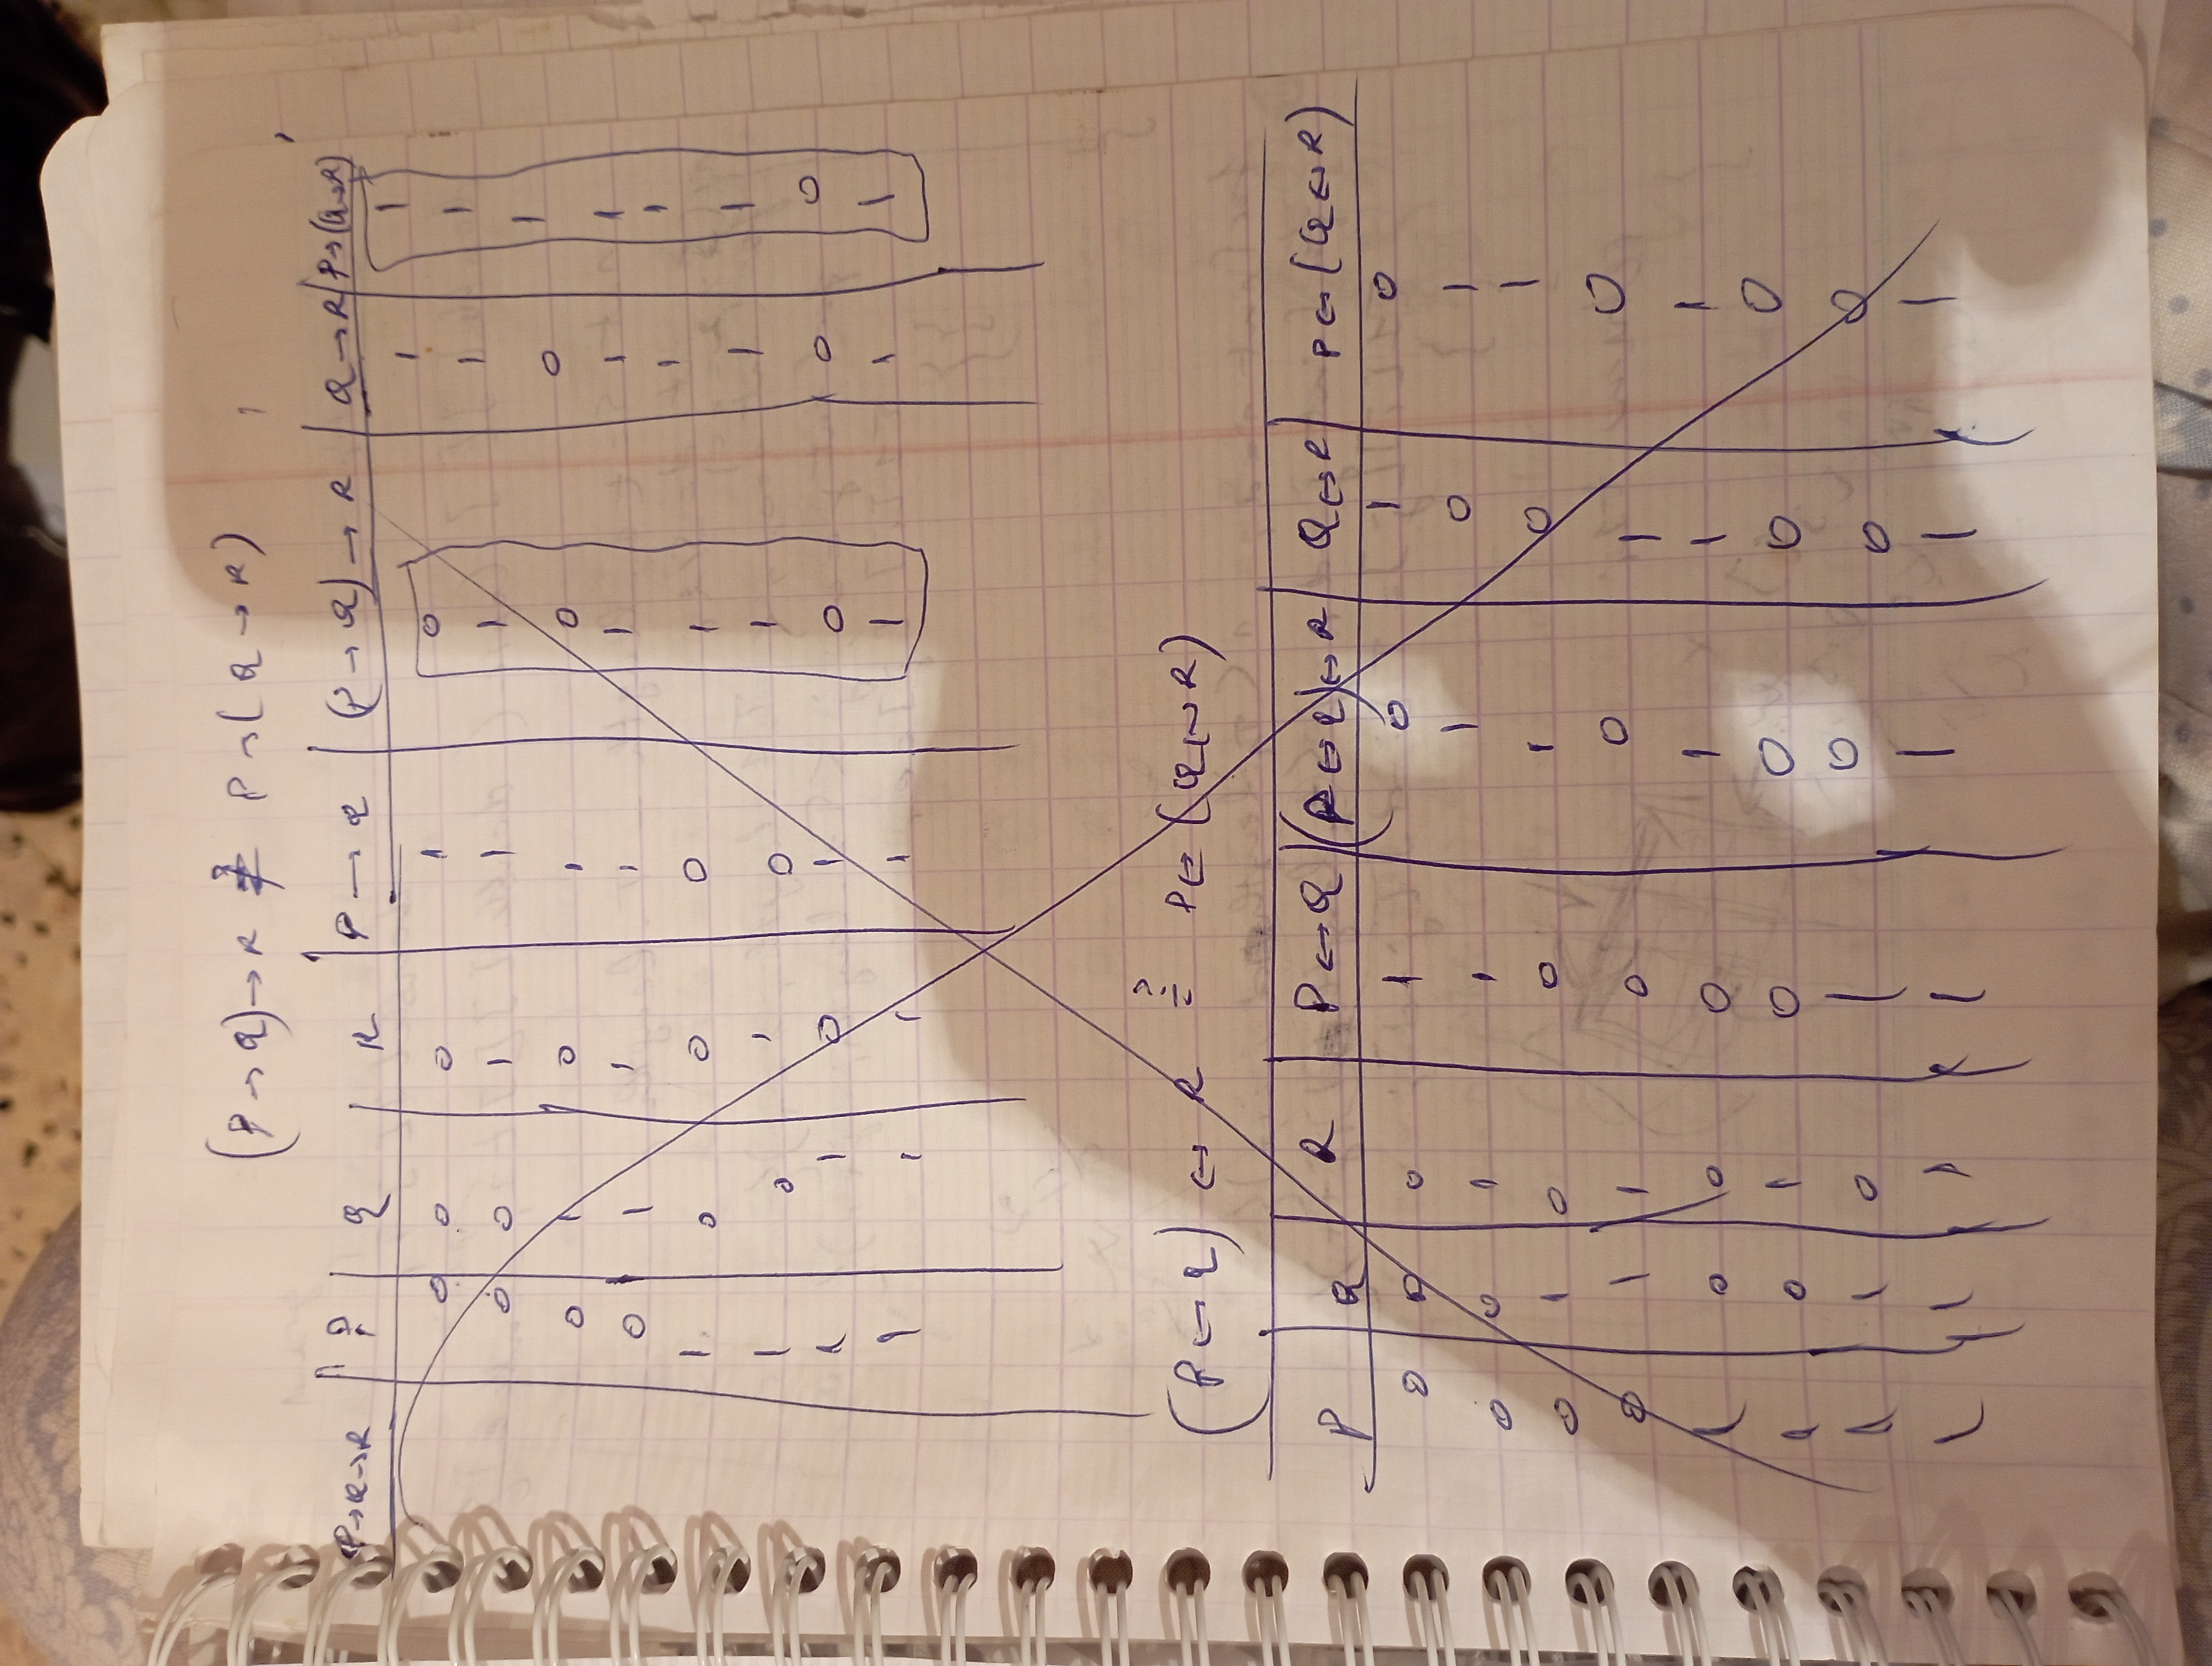 (P → Q) → R ≟ P → (Q → R)
P→Q→R | P | Q | R | P → Q | (P → Q) → R | Q → R | P→(Q→R)
0 0 0 1 0 1 1
0 0 1 1 1 1 1
0 1 0 1 0 0 1
0 1 1 1 1 1 1
1 0 0 0 1 1 1
1 0 1 0 1 1 1
1 1 0 1 0 0 0
1 1 1 1 1 1 1
(P ↔ Q) ↔ R ≟ P ↔ (Q ↔ R)
P | Q | R | P ↔ Q | (P ↔ Q) ↔ R | Q ↔ R | P ↔ (Q ↔ R)
0 0 0 1 0 1 0
0 0 1 1 1 0 1
0 1 0 0 1 0 1
0 1 1 0 0 1 0
1 0 0 0 1 1 1
1 0 1 0 0 0 0
1 1 0 1 0 0 0
1 1 1 1 1 1 1